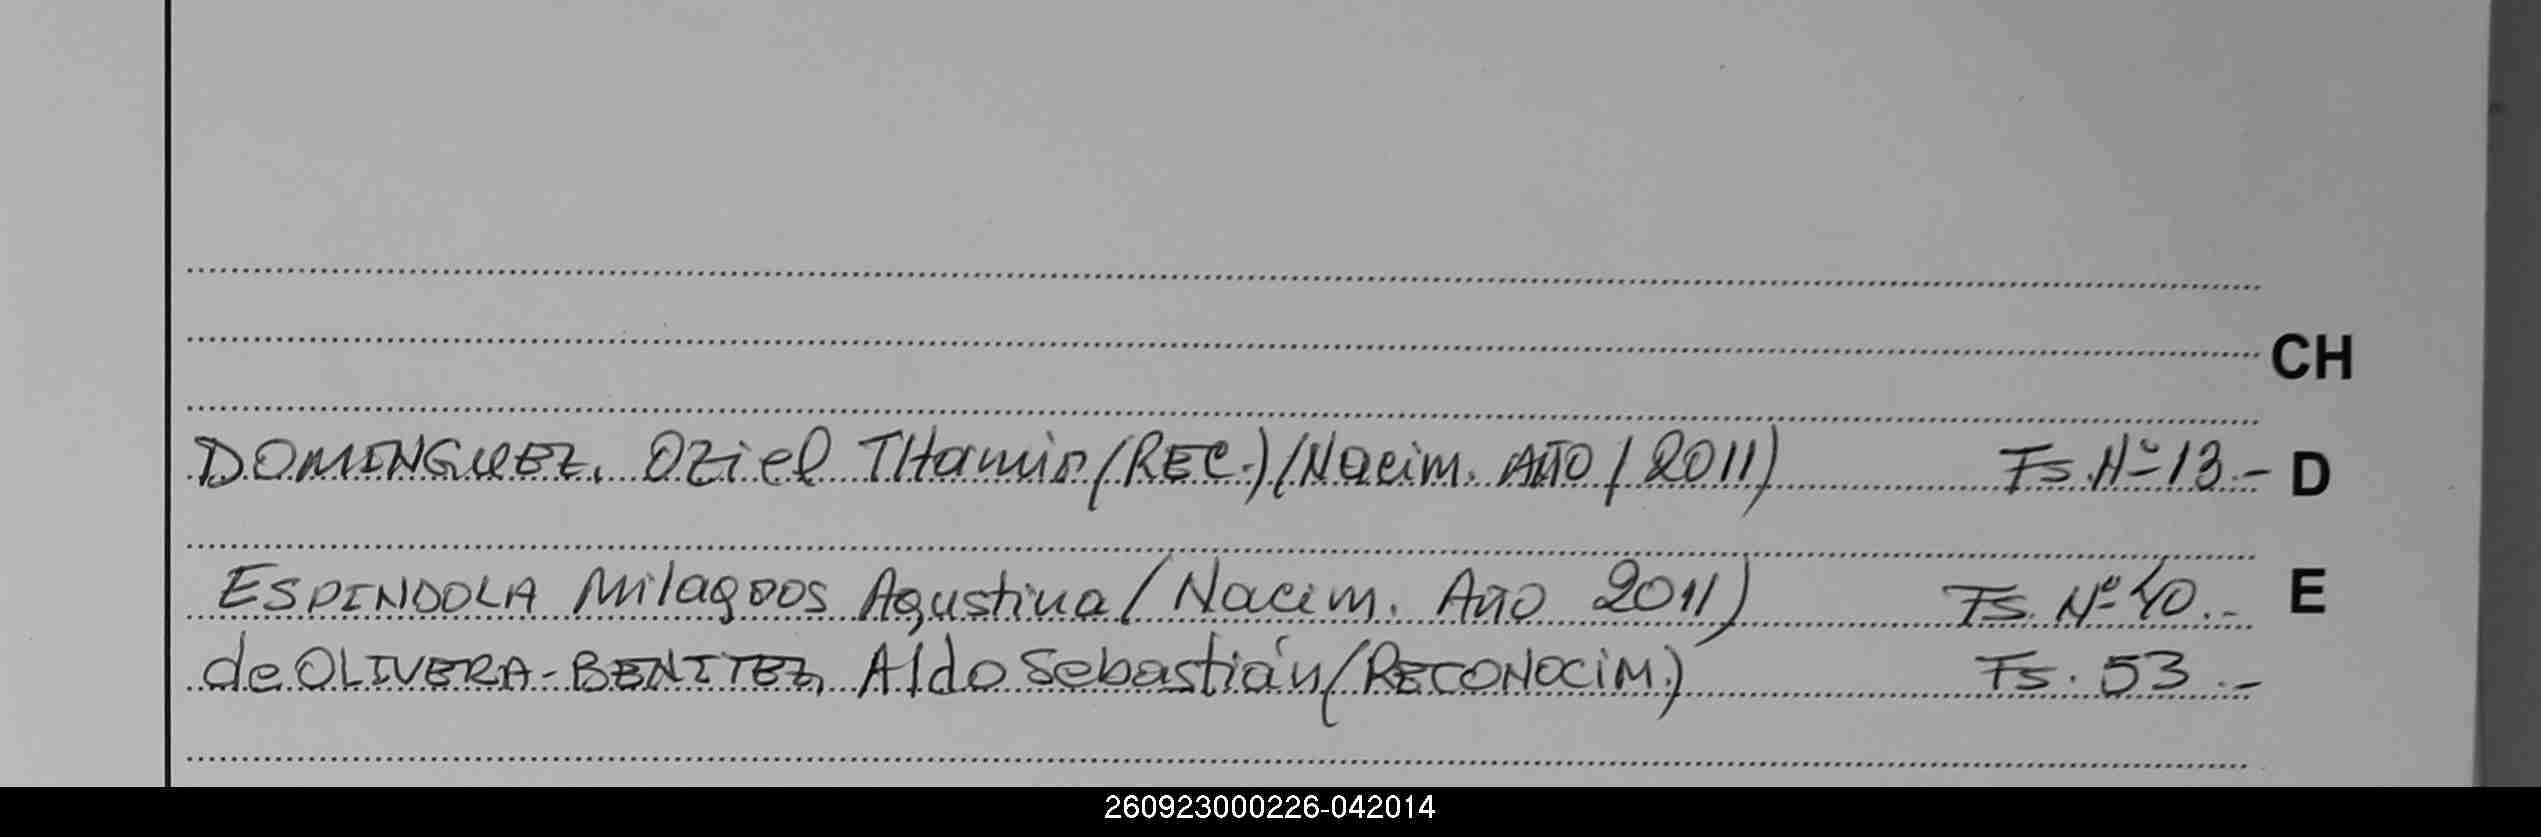 CH
DOMINGUEZ, Oziel THamir (REC.) (Nacim. AÑO / 2011) Fs. Nº 13.- D
ESPINDOLA Milagros Agustina (Nacim. Año 2011) Fs. Nº 40.- E
de OLIVERA-BENITEZ, Aldo Sebastián (RECONOCIM.) Fs. 53.-
260923000226-042014